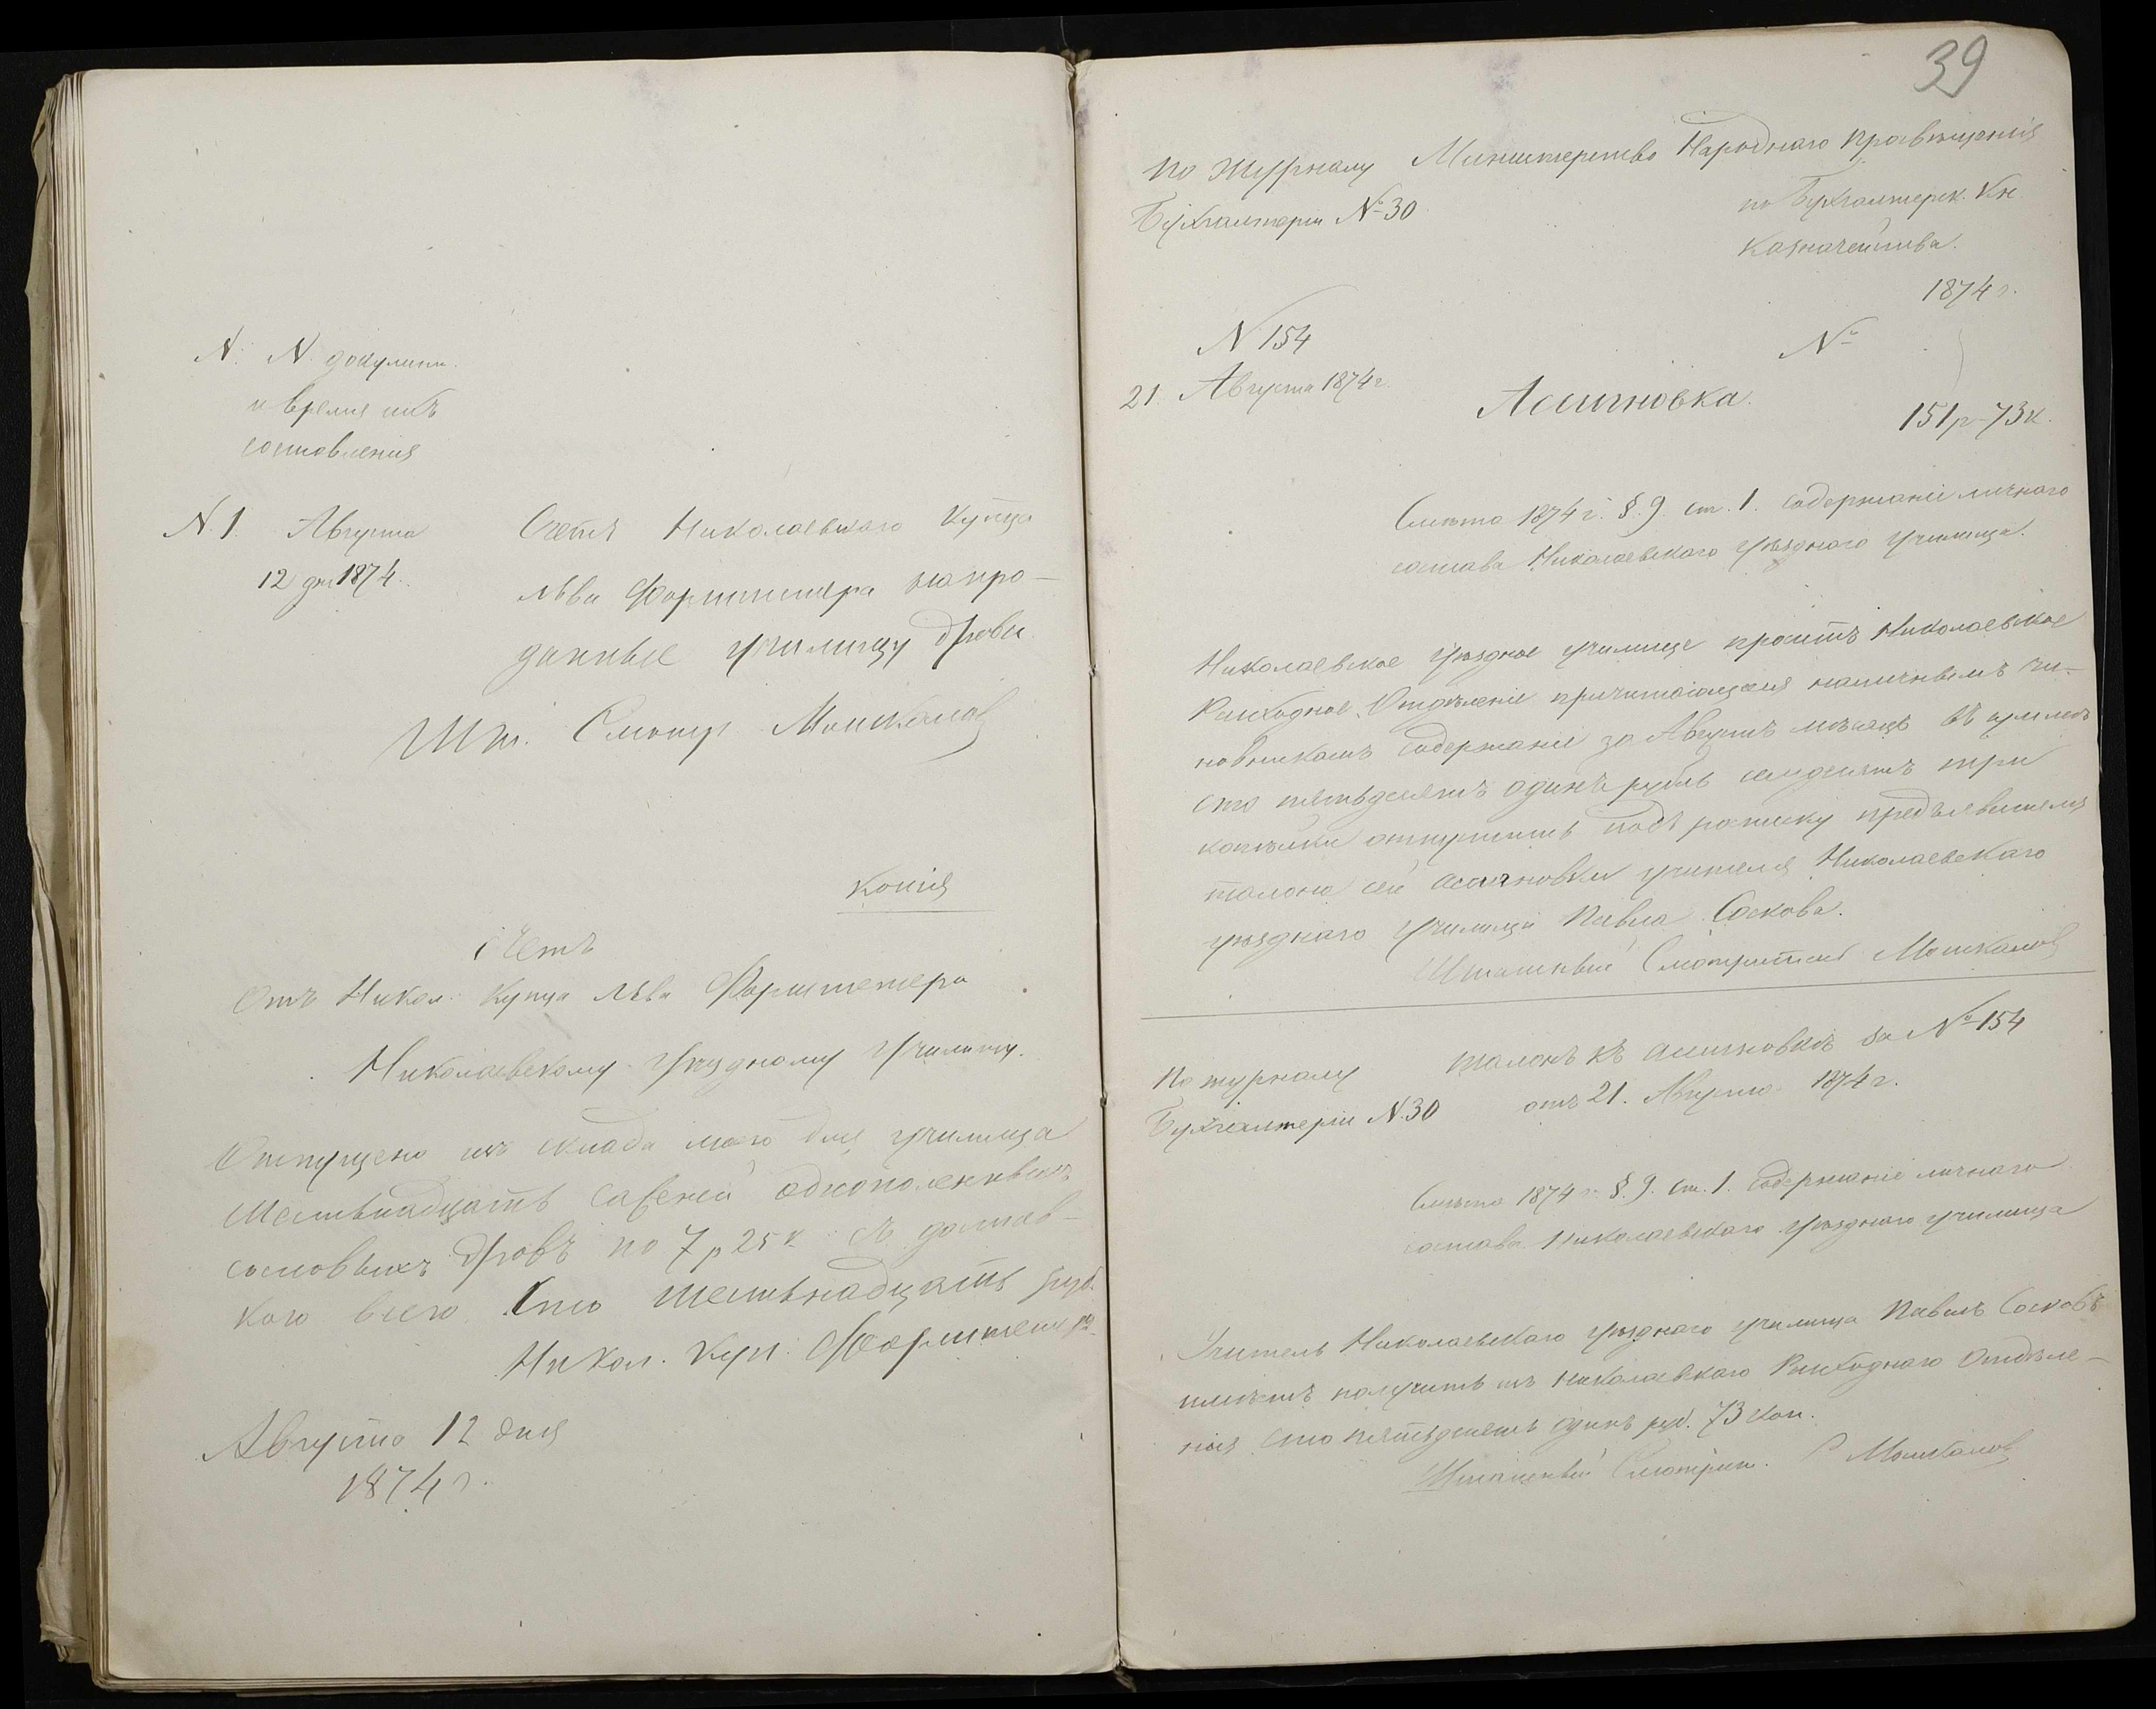 N. N. докумен.
и время ихъ
составленія
N. 1 Августа
12 дня 1874.
Счетъ Николаевскаго купца
Льва Форштетера на про-
данные училищу дрова
Шт. Смотр. Мошкалов
Копія
Счетъ
Отъ Никол. купца Льва Форштетера
Николаевскому Уѣздному Училищу.
Отпущено изъ склада моего для училища
Шестьнадцать саженей однополенныхъ
сосновыхъ дровъ по 7 р 25 к съ достав-
кою всего Сто шестьнадцать руб.
Никол. Куп. Форштетеръ
Августа 12 дня
1874 г.
39
По Журналу
Бухгалтеріи №30
Министерство Народнаго Просвѣщенія
по Бухгалтерск. Кн.
Казначейства.
1874 г.
N 154
21. Августа 1874 г.
№
Ассигновка.
151 р 73 к.
Смѣта 1874 г. §. 9. ст. 1. Содержаніе личнаго
состава Николаевскаго Уѣзднаго Училища.
Николаевское Уѣздное Училище проситъ Николаевское
Расходное Отдѣленіе причитающееся наличнымъ чи-
новникамъ содержаніе за Августъ мѣсяцъ въ суммѣ
сто пятьдесятъ одинъ рубль семдесятъ три
копѣйки отпустить подъ росписку предъявителя
талона сей ассигновки учителя Николаевскаго
уѣзднаго Училища Павла Соскова.
Штатный Смотритель Мошкалов
По журналу
Бухгалтеріи N. 30
Талонъ къ ассигновкѣ за №154
отъ 21. Августа 1874 г.
Смѣта 1874 г. §. 9. ст. 1. Содержаніе личнаго
состава Николаевскаго Уѣзднаго училища
Учитель Николаевскаго уѣзднаго училища Павелъ Сосковъ
имѣетъ получить изъ Николаевскаго Расходнаго Отдѣле-
нія сто пятьдесятъ одинъ руб. 73 коп.
Штатный Смотрит. С Мошкалов